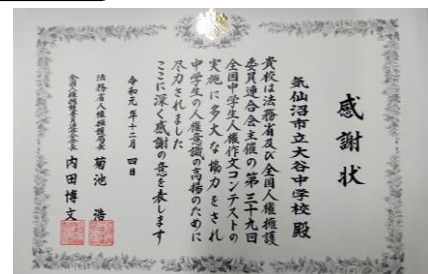 感謝状
気仙沼市立大谷中学校 殿
貴校は法務省及び全国人権擁護
委員連合会主催の第三十九回
全国中学生人権作文コンテストの
実施に多大な協力をされ
中学生の人権意識の高揚のために
尽力されました
ここに深く感謝の意を表します
令和元年十二月四日
法務省人権擁護局長 菊池 浩
全国人権擁護委員連合会長 内田博文